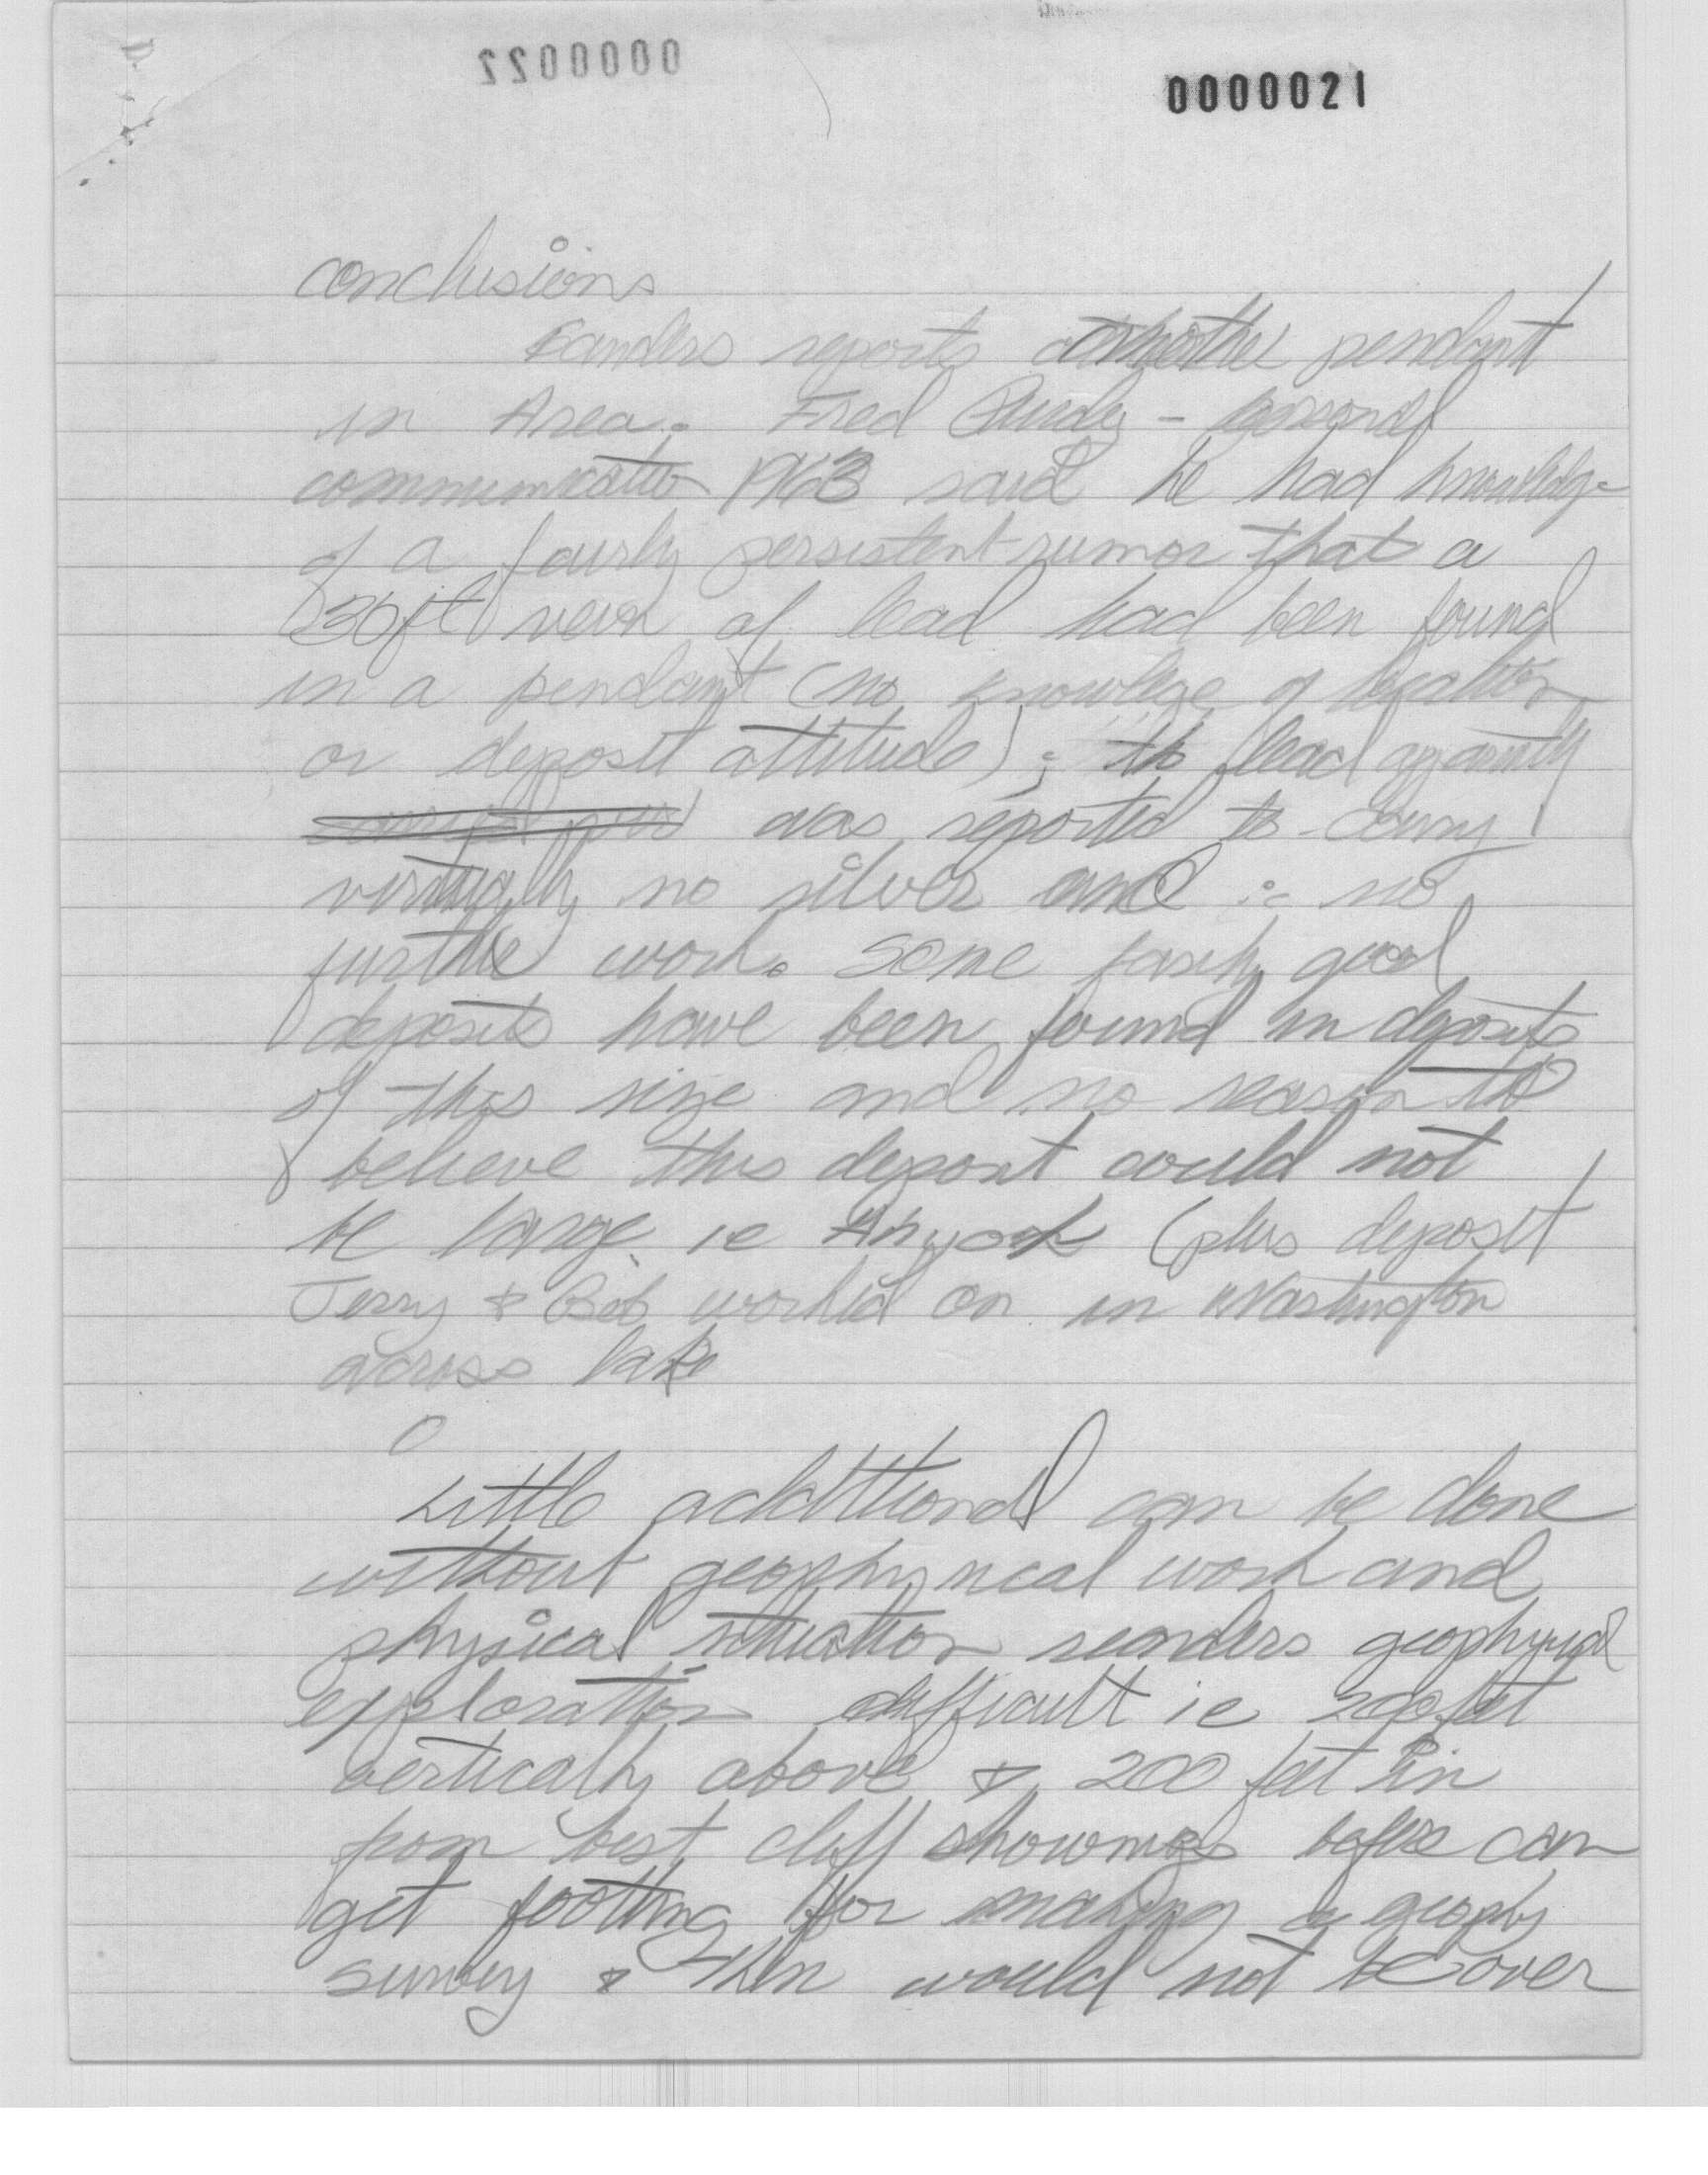 0000022
0000021
conclusions
Sanders reports another pendant
in Area. Fred Purdy - personal
communication 1963 said he had knowledge
of a fairly persistent rumor that a
30 ft vein of lead had been found
in a pendant (no knowlege of location
or deposit attitude); the lead apparently
was reported to carry
virtually no silver and ∴ no
further work. Some fairly good
deposits have been found in deposits
of this size and no reason to
believe this deposit could not
be large ie Anyox (plus deposit
Jerry & Bob worked on in Washington
across lake
Little additional can be done
without geophysical work and
physical situation renders geophysical
exploration difficult ie 200 feet
vertically above & 200 feet in
from best cliff showings before can
get footing for making a geophy
survey & then would not be over